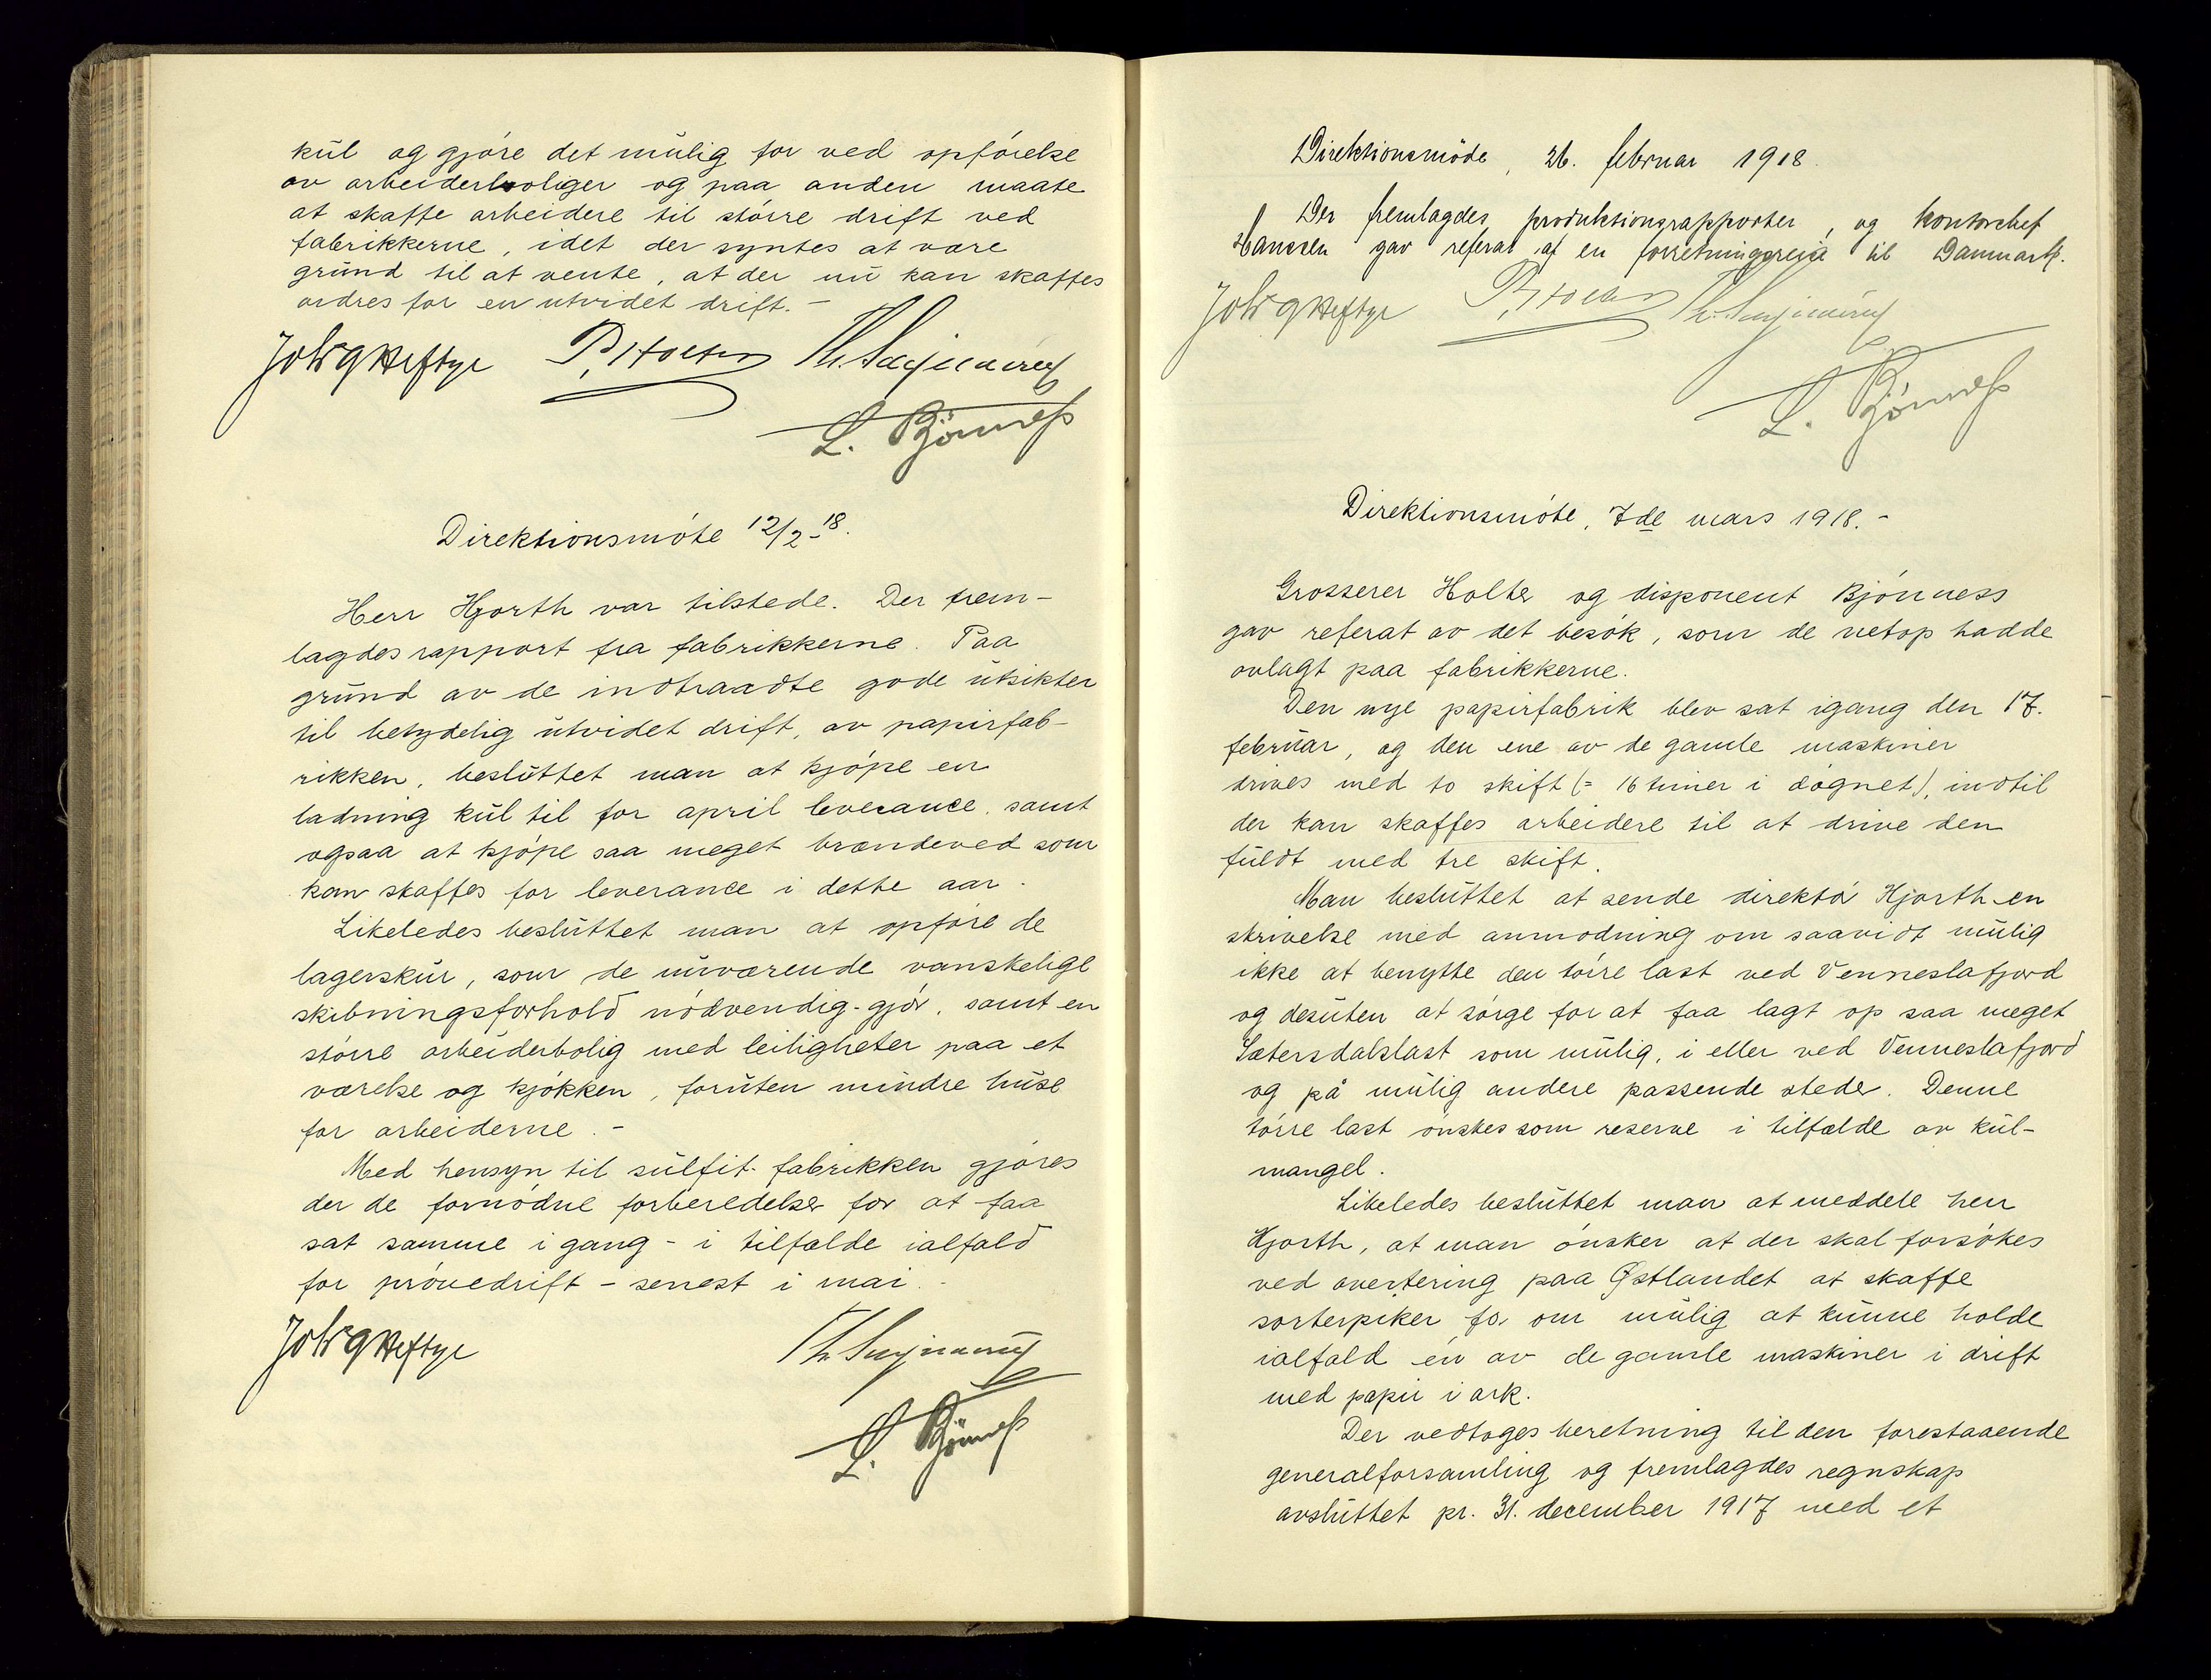 kul og gjøre det mulig for ved opførelse
av arbeiderboliger og paa anden maate
at skaffe arbeidere til større drift ved
fabrikkerne, idet der syntes at være
grund til at vente, at der nu kan skaffes
ordres for en utvidet drift. –
Joh G Heftye P. Holter
L. Bjönness
Direktionsmøte 12/2-18.
Herr Hjorth var tilstede. Der frem-
lagdes rapport fra fabrikkerne. Paa
grund av de indtraadte gode utsikter
til betydelig utvidet drift, av papirfab-
rikken, besluttet man at kjøpe en
ladning kul til for april leverance, samt
ogsaa at kjøpe saa meget brændeved som
kan skaffes for leverance i dette aar.
Likeledes besluttet man at opføre de
lagerskur, som de nuværende vanskelige
skibningsforhold nødvendig-gjør, samt en
større arbeiderbolig med leiligheter paa et
værelse og kjøkken, foruten mindre huse
for arbeiderne. –
Med hensyn til sulfit-fabrikken gjøres
der de fornødne forberedelser for at faa
sat samme i gang – i tilfælde ialfald
for prøvedrift – senest i mai. –
Joh G Heftye
L. Bjönness
Direktionsmöde, 26. februar 1918.
Der fremlagdes produktionsrapporter, og kontorchef
Hanssen gav referat af en forretningsreise til Danmark.
Joh G Heftye P. Holter
L. Bjönness
Direktionsmøte, 7de mars 1918. –
Grosserer Holter og disponent Bjønness
gav referat av det besøk, som de netop hadde
avlagt paa fabrikkerne.
Den nye papirfabrik blev sat igang den 17.
februar, og den ene av de gamle maskiner
drives med to skift (= 16 timer i døgnet), indtil
der kan skaffes arbeidere til at drive den
fuldt med tre skift.
Man besluttet at sende direktør Hjorth en
skrivelse med anmodning om saavidt mulig
ikke at benytte den tørre last ved Venneslafjord
og desuten at sørge for at faa lagt op saa meget
Sætersdalslast som mulig, i eller ved Venneslafjord
og på mulig andere passende steder. Denne
tørre last ønskes som reserve i tilfælde av kul-
mangel.
Likeledes besluttet man at meddele herr
Hjorth, at man ønsker at der skal forsøkes
ved avertering paa Østlandet at skaffe
sorterpiker for om mulig at kunne holde
ialfald én av de gamle maskiner i drift
med papir i ark.
Der vedtoges beretning til den forestaaende
generalforsamling og fremlagdes regnskap
avsluttet pr. 31. december 1917 med et